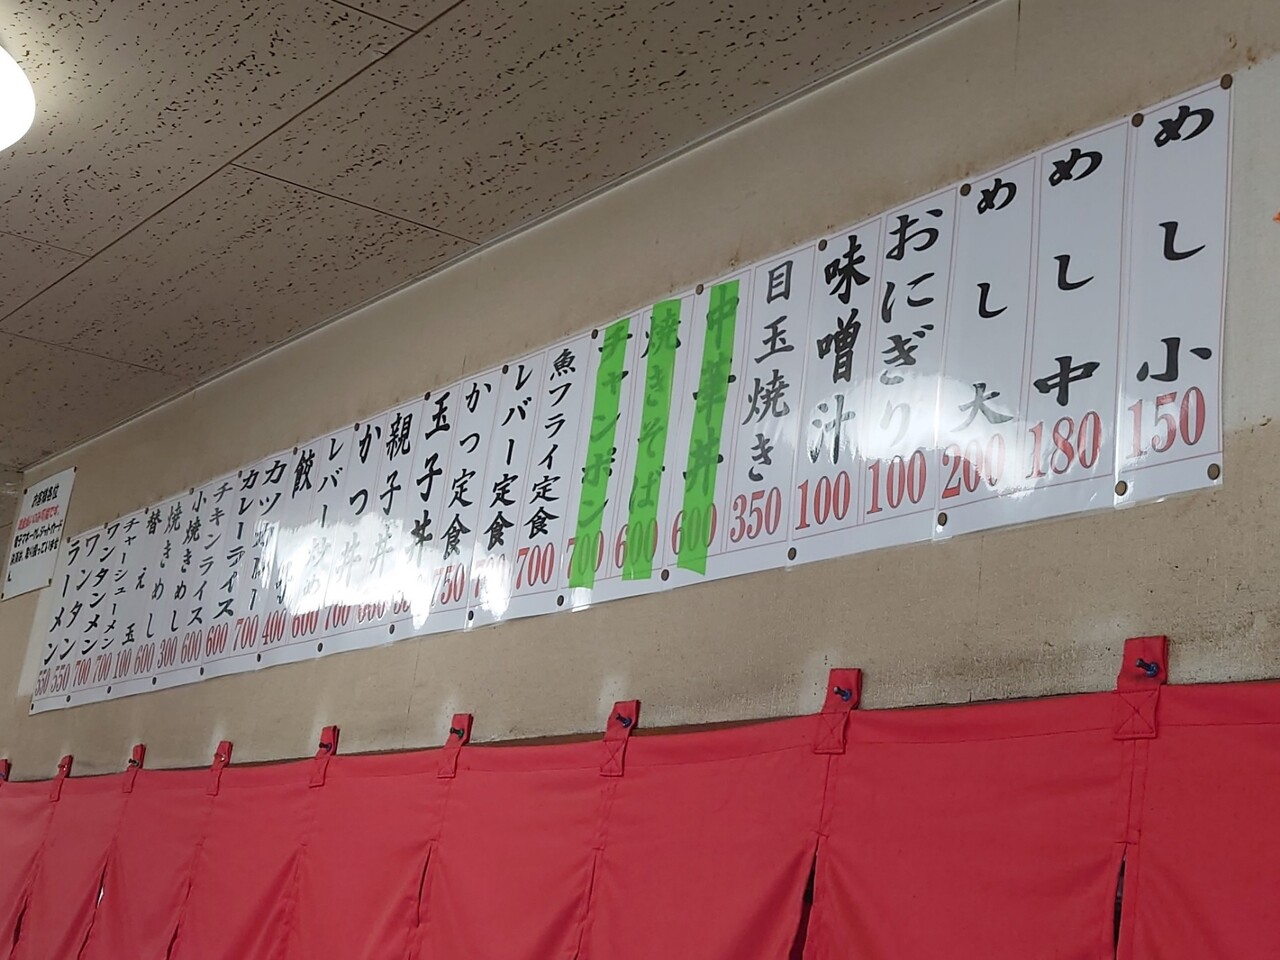 めし小 150
めし中 180
めし大 200
おにぎり 100
味噌汁 100
目玉焼き 350
中華丼 600
焼きそば 600
チャンポン 700
魚フライ定食 700
レバー定食
かつ定食 750
玉子丼
親子丼 600
かつ丼 700
レバー炒め 600
餃 400
カツカレー 700
カレーライス 600
チキンライス 600
小焼きめし 300
焼きめし 600
替え玉 100
チャーシューメン 700
ワンタンメン 700
ラーメン 550
ワンタン 550
お客様各位
電子マネー・クレジットカード